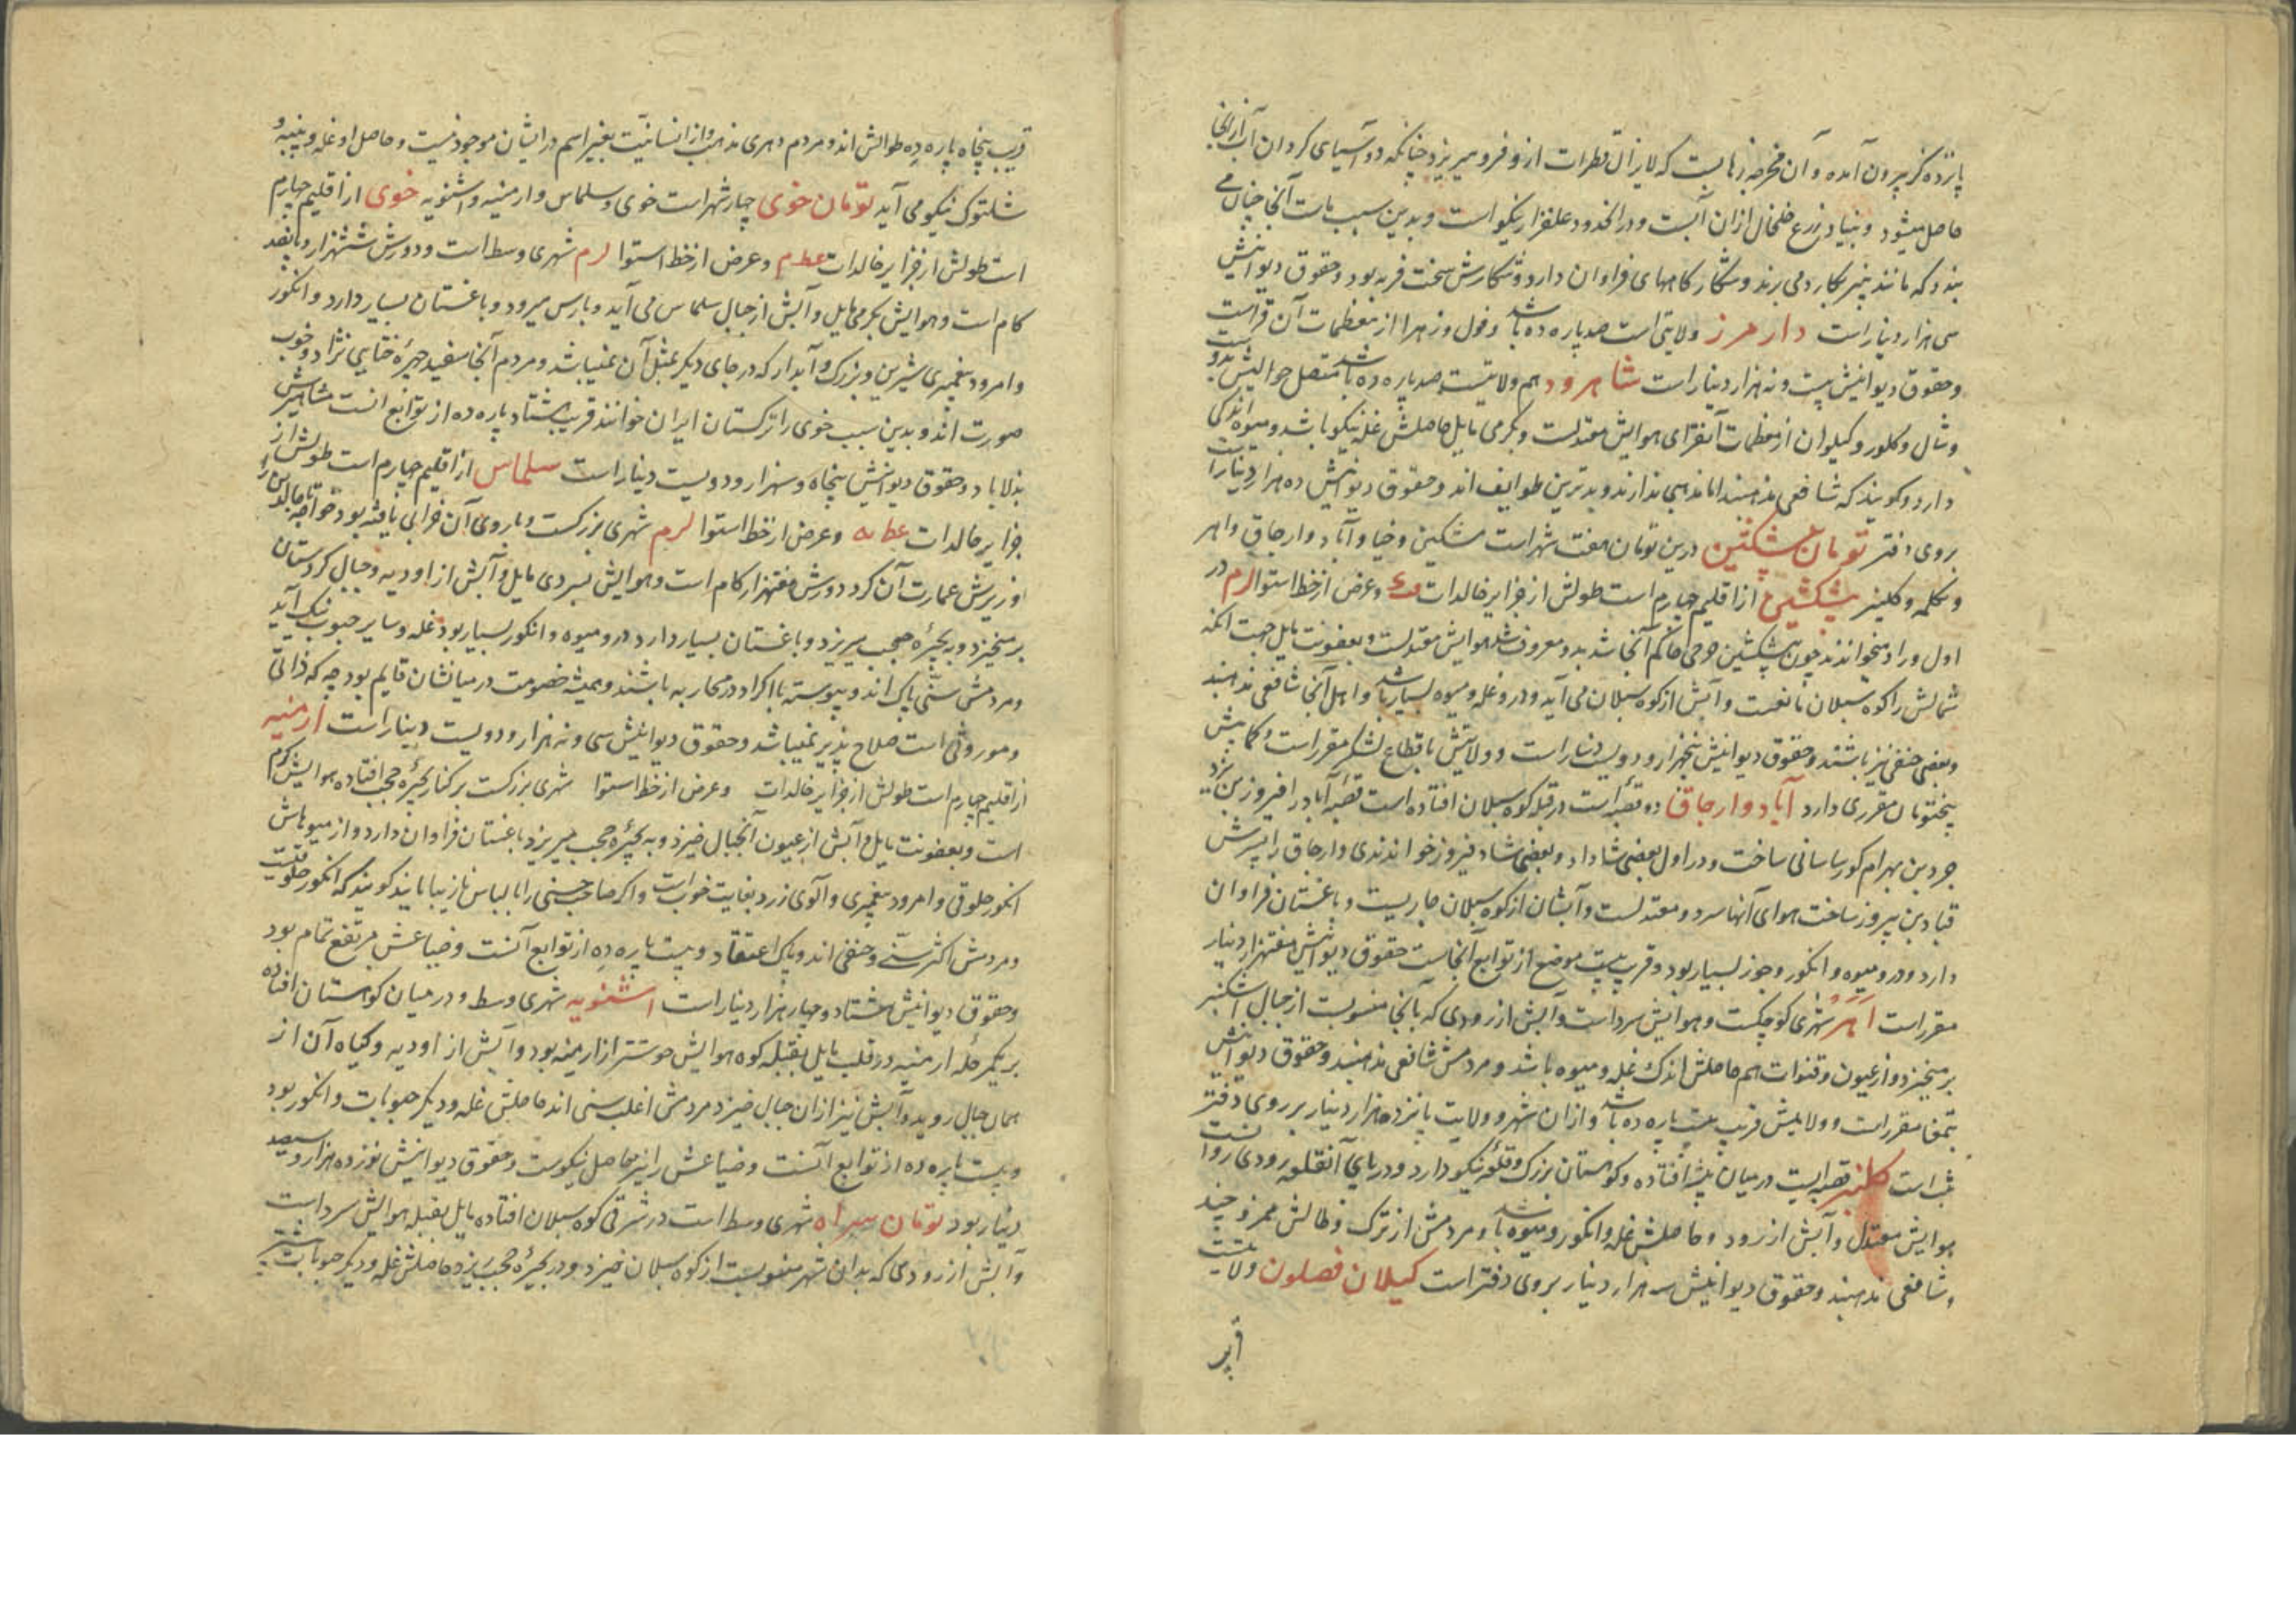 پانزده گز بیرون آمده و آن مخرجه زهابیست که لایزال قطرات ازو فرو میریزد چنانکه دو آسیای گردان آب از آنجا
حاصل میشود و بنیاد زرع خلخال از آن آبست و در آن حدود علفزار نیکو است و بدین سبب ماست آنجا چنان می
بندد که مانند پنیر بکارد می برند و شکارگاههای فراوان دارد و شکارش سخت فربه بود و حقوق دیوانیش
سی هزار دینار است دار مرز ولایتی است صد پاره ده باشد و فول و زهرا از معظمات آن قراست
و حقوق دیوانیش بیست و نه هزار دینار است شاهرود هم ولایتیست صد پاره ده باشد متصل حوالیش بدو
و شال و کلور و کیلوان از معظمات آنقرای هوایش معتدلست و بگرمی مایل حاصلش غله نیکو باشد و میوه اندکی
دارد و گویند که شافعی مذهبند اما مذهبی ندارند و بدترین طوایف اند و حقوق دیوانیش ده هزار دینار است
بروی دفتر تومان پیشکین درین تومان هفت شهر است مشکین و خیاو و آناد و ارجاق و اهر
و تکلمه و کلنبر پیشکین از اقلیم چهارم است طولش از جزایر خالدات و عرض از خط استوا لرم در
اول وراوی میخواندند چون پیشکین حاکم آنجا شد بدو معروف شد هوایش معتدلست و بعفونت مایل جهت آنکه
شمالش را کوه سبلان مانعست و آبش از کوه سبلان می آید و درو غله و میوه بسیار باشد و اهل آنجا شافعی مذهبند
و بعضی حنفی نیز باشند و حقوق دیوانیش پنجهزار و دویست دینار است و ولایتش باقطاع لشکر مقرر است و کمابیش
پنج تومان مقرری دارد آناد و ارجاق دو قصبه است در قبله کوه سبلان افتاده است قصبه آناد را فیروز بن یزد
جرد بن بهرام گور ساسانی ساخت و در اول بعضی شاداد و بعضی شاد فیروز خواندندی و ارجاق را پسرش
قباد بن پیروز ساخت هوای آنها سرد و معتدلست و آبشان از کوه سبلان جاریست و باغستان فراوان
دارد و درو میوه و انگور و جوز بسیار بود و قرب بیست موضع از توابع آنجاست حقوق دیوانیش هفتهزار دینار
مقرر است اهر شهری کوچکست و هوایش سرد است و آبش از رودی که بآنجا منسوبست از جبال اشکنبر
برمیخیزد و از عیون و قنوات هم حاصلش اندک غله و میوه باشد و مردمش شافعی مذهبند و حقوق دیوانیش
بتمغا مقرر است و ولایتش قریب بیست پاره ده باشد و از آن شهر و ولایت پانزده هزار دینار بر روی دفتر
ثبت است کلنبر قصبه ایست در میان بیشه افتاده و کوهستان بزرگ و قلعه نیکو دارد و در پای آنقلعه رودی روانست
هوایش معتدل و آبش از رود و حاصلش غله و انگور و میوه باشد و مردمش از ترک و طالش ممزوجند
و شافعی مذهبند و حقوق دیوانیش سه هزار دینار بروی دفتر است کیلان فصلون ولایتیست
قریب پنجاه پاره دِه طوالش اند و مردم دهری مذهب و از انسانیّت بغیر اسم در ایشان موجود نیست و حاصل او غله و پنبه و
شلتوک نیکو می آید تومان خوی چهار شهر است خوی و سلماس و ارمنیه و اشنویه خوی از اقلیم چهارم
است طولش از جزایر خالدات عطم و عرض از خط استوا لرم شهری وسط است و دورش ششهزار و پانصد
کام است و هوایش بگرمی مایل و آبش از جبال سلماس می آید و بارس میرود و باغستان بسیار دارد و انگور
و امرود پیغمبری شیرین و بزرگ و آبدار که در جای دیگر بمثل آن نمیباشد و مردم آنجا سفید چهره ختایی نژاد و خوب
صورت اند و بدین سبب خوی را ترکستان ایران خوانند قریب هشتاد پاره ده از توابع انست مشاهیرش
بدلاباد و حقوق دیوانیش پنجاه و سهزار و دویست دینار است سلماس از اقلیم چهارم است طولش از
جزایر خالدات عطا و عرض از خط استوا لرم شهری بزرگست و باروی آن خرابی یافته بود خواجه تاجالدین
وزیرش عمارت آن کرد دورش هفتهزار کام است و هوایش بسردی مایل و آبش از اودیه و جبال کردستان
برمیخیزد و به بحیره چیچست میریزد و باغستان بسیار دارد درو میوه و انگور بسیار بود غله و سایر حبوب نیک آید
و مردمش سنّی پاک اند و پیوسته با اکراد در محاربه باشند و همیشه خصومت در میانشان قایم بود چه که ذاتی
و موروثی است صلاح پذیر نمیباشد و حقوق دیوانیش سی و نه هزار و دویست دینار است ارمنیه
از اقلیم چهارم است طولش از جزایر خالدات و عرض از خط استوا شهری بزرگست بر کنار بحیره چیچست افتاده هوایش گرم
است و بعفونت مایل و آبش از عیون آنجبال خیزد و به بحیره چیچست میریزد باغستان فراوان دارد و از میوهاش
انگور حلوقی و امرود پیغمبری و آلوی زرد بغایت خوبست و اگر صاحب حسنی را با لباس نازیبا یابند گویند که انگور خلوقیست
و مردمش اکثر سنّی و حنفی اند و پاک اعتقاد و بیست پاره دِه از توابع آنست و ضیاعش مرتفع تمام بود
و حقوق دیوانیش هفتاد و چهار هزار دینار است اشنویه شهری وسط و در میان کوهستان افتاده
بر یکمرحله ارمنیه در قلب مایل بقبله کوه هوایش خوشتر از ارمنیه بود و آبش از اودیه و گیاه آن از
همان جبال روید و آبش نیز از آن جبال خیزد مردمش اغلب سنی اند حاصلش غله و دیگر حبوبات و انگور بود
و بیست پاره ده از توابع آنست و ضیاعش را نیز حاصل نیکوست و حقوق دیوانیش نوزده هزار و سیصد
دینار بود تومان سراه شهری وسط است در شرقی کوه سبلان افتاده مایل بقبله هوایش سرد است
و آبش از رودی که بدان شهر منسوبست از کوه سبلان خیزد و در بحیره چیچست ریزد حاصلش غله و دیگر حبوبات بیشتر